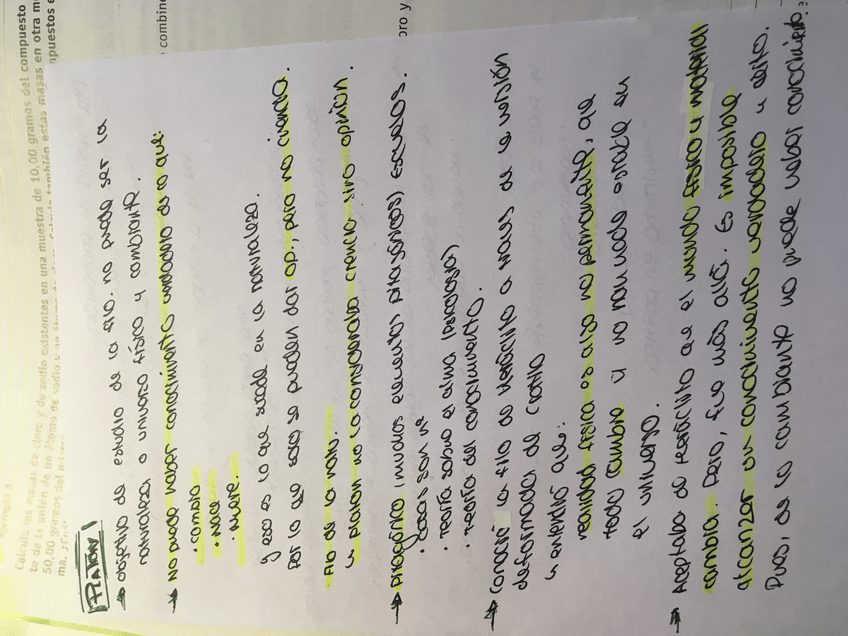 Calcula las masas de cloro y de sodio existentes en una muestra de 10,00 gramos del compuesto
50,00 gramos del
ma.
combine
oro y
PLATÓN
→ objetivo de estudio de la filo. no puede ser la
naturaleza o universo físico y cambiante.
→ No puede haber conocimiento verdadero de lo que:
· cambia
· nace
· muere.
y eso es lo que sucede en la naturaleza.
Por lo que solo se pueden dar op., pero no ciencia.
Filo de la natu.
↳ platón no la consideraba ciencia sino opinión.
→ Pitagórico (muchos elementos pitagóricos) escuelas.
· Cosas son nº
· teoría sobre el alma (psicología)
· teoría del conocimiento.
→ Conoció la filo de Heráclito a traves de la versión
deformada de Cratilo
↳ entendió que:
realidad física es algo no permanente, que
todo cambia y no hay nada estable en
el universo.
→ Aceptaba de Heráclito que el mundo físico y material
cambia. Pero, fue más allá. Es imposible
alcanzar un conocimiento verdadero y esto.
Pues, de lo cambiante no puede haber conocimiento.